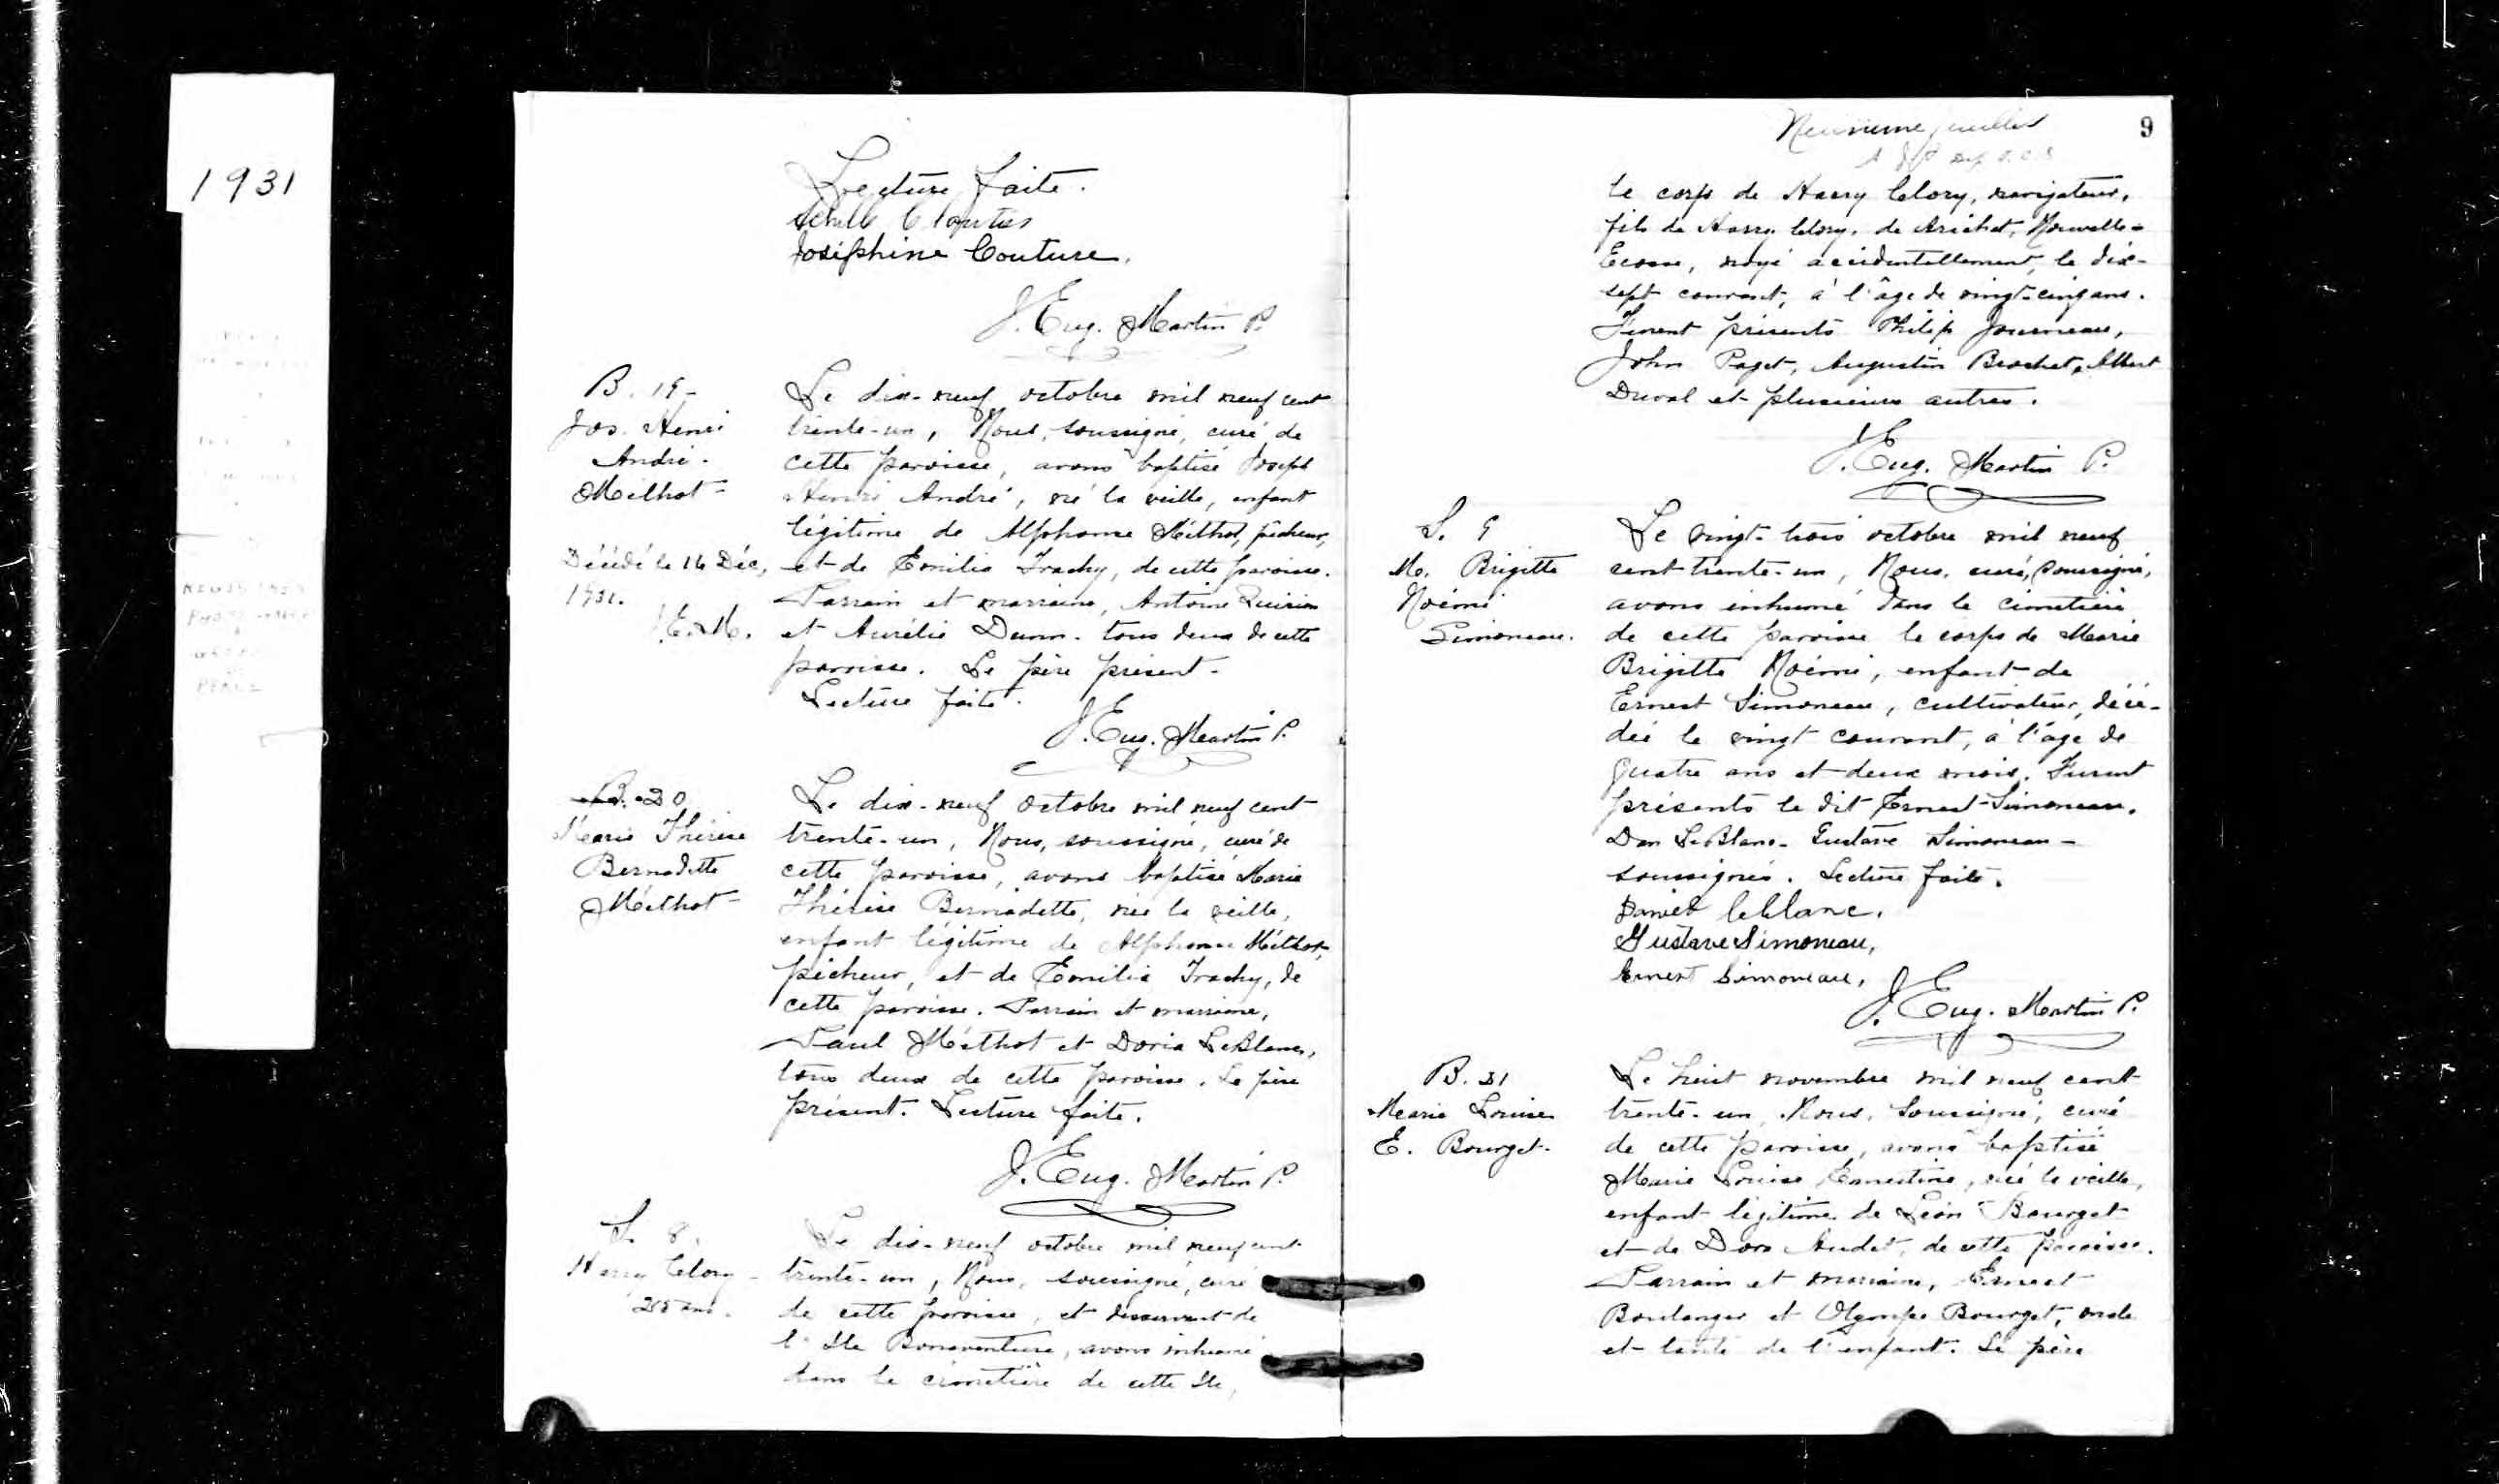 1931
Lecture faite.
Achille Cloutier
Joséphine Couture.
J. Eug. Martin P.
B. 19-
Jos. Henri
André-
Méthot-
Décédé le 16 Déc,
1931.
J.E.M.
Le dix-neuf octobre mil neuf cent
trente-un, Nous, soussigné, curé de
cette paroisse, avons baptisé Joseph
Henri André, né la veille, enfant
légitime de Alphonse Méthot, pêcheur,
et de Emilia Trachy, de cette paroisse.
Parrain et marraine, Antoine Quirion
et Aurélie Dunn- tous deux de cette
paroisse. Le père présent-
Lecture faite.
J. Eug. Martin P.
B. 20
Marie Thérèse
Bernadette
Méthot-
Le dix-neuf octobre mil neuf cent
trente-un, Nous, soussigné, curé de
cette paroisse, avons baptisé Marie
Thérèse Bernadette, née la veille,
enfant légitime de Alphonse Méthot,
pêcheur, et de Emilia Trachy, de
cette paroisse. Parrain et marraine,
Paul Méthot et Doria LeBlanc,
tous deux de cette paroisse. Le père
présent. Lecture faite.
J. Eug. Martin P.
S. 8.
Harry Clory-
25 ans.
Le dix-neuf octobre mil neuf cent
trente-un, Nous, soussigné, curé
de cette paroisse, et desservant de
l'Ile Bonaventure, avons inhumé
dans le cimetière de cette Ile,
Neuvième feuillet
9
le corps de Harry Clory, navigateur,
fils de Harry Clory, de Arichat, Nouvelle-
Ecosse, noyé accidentellement, le dix-
sept courant, à l'âge de vingt-cinq ans.
Furent présents Philip Journeau,
John Paget, Augustin Brochet, Albert
Duval et plusieurs autres.
J. Eug. Martin P.
S. 9
M. Brigitte
Noémi
Simoneau.
Le vingt-trois octobre mil neuf
cent trente-un, Nous, curé, soussigné,
avons inhumé dans le cimetière
de cette paroisse le corps de Marie
Brigitte Noémi, enfant de
Ernest Simoneau, cultivateur, décé-
dée le vingt courant, à l'âge de
quatre ans et deux mois. Furent
présents le dit Ernest Simoneau,
Dan LeBlanc- Gustave Simoneau-
soussignés. Lecture faite.
Daniel leblanc.
Gustave Simoneau,
Ernest Simoneau,
J. Eug. Martin P.
B. 21
Marie Louise
E. Bourget-
Le huit novembre mil neuf cent
trente-un, Nous, soussigné, curé
de cette paroisse, avons baptisé
Marie Louise Ernestine, née la veille,
enfant légitime de Léon Bourget
et de Dora Audet, de cette paroisse.
Parrain et marraine, Ernest
Boulanger et Olympe Bourget, oncle
et tante de l'enfant. Le père